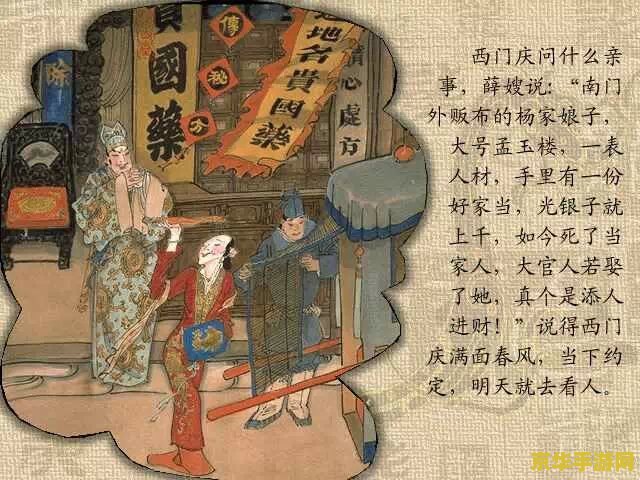 西门庆问什么亲
事，薛嫂说：“南门
外贩布的杨家娘子，
大号孟玉楼，一表
人材，手里有一份
好家当，光银子就
上千，如今死了当
家人，大官人若娶
了她，真个是添人
进财！”说得西门
庆满面春风，当下约
定，明天就去看人。
貴國藥
傳
秘
道地名貴國藥
精心處方
京华手游网